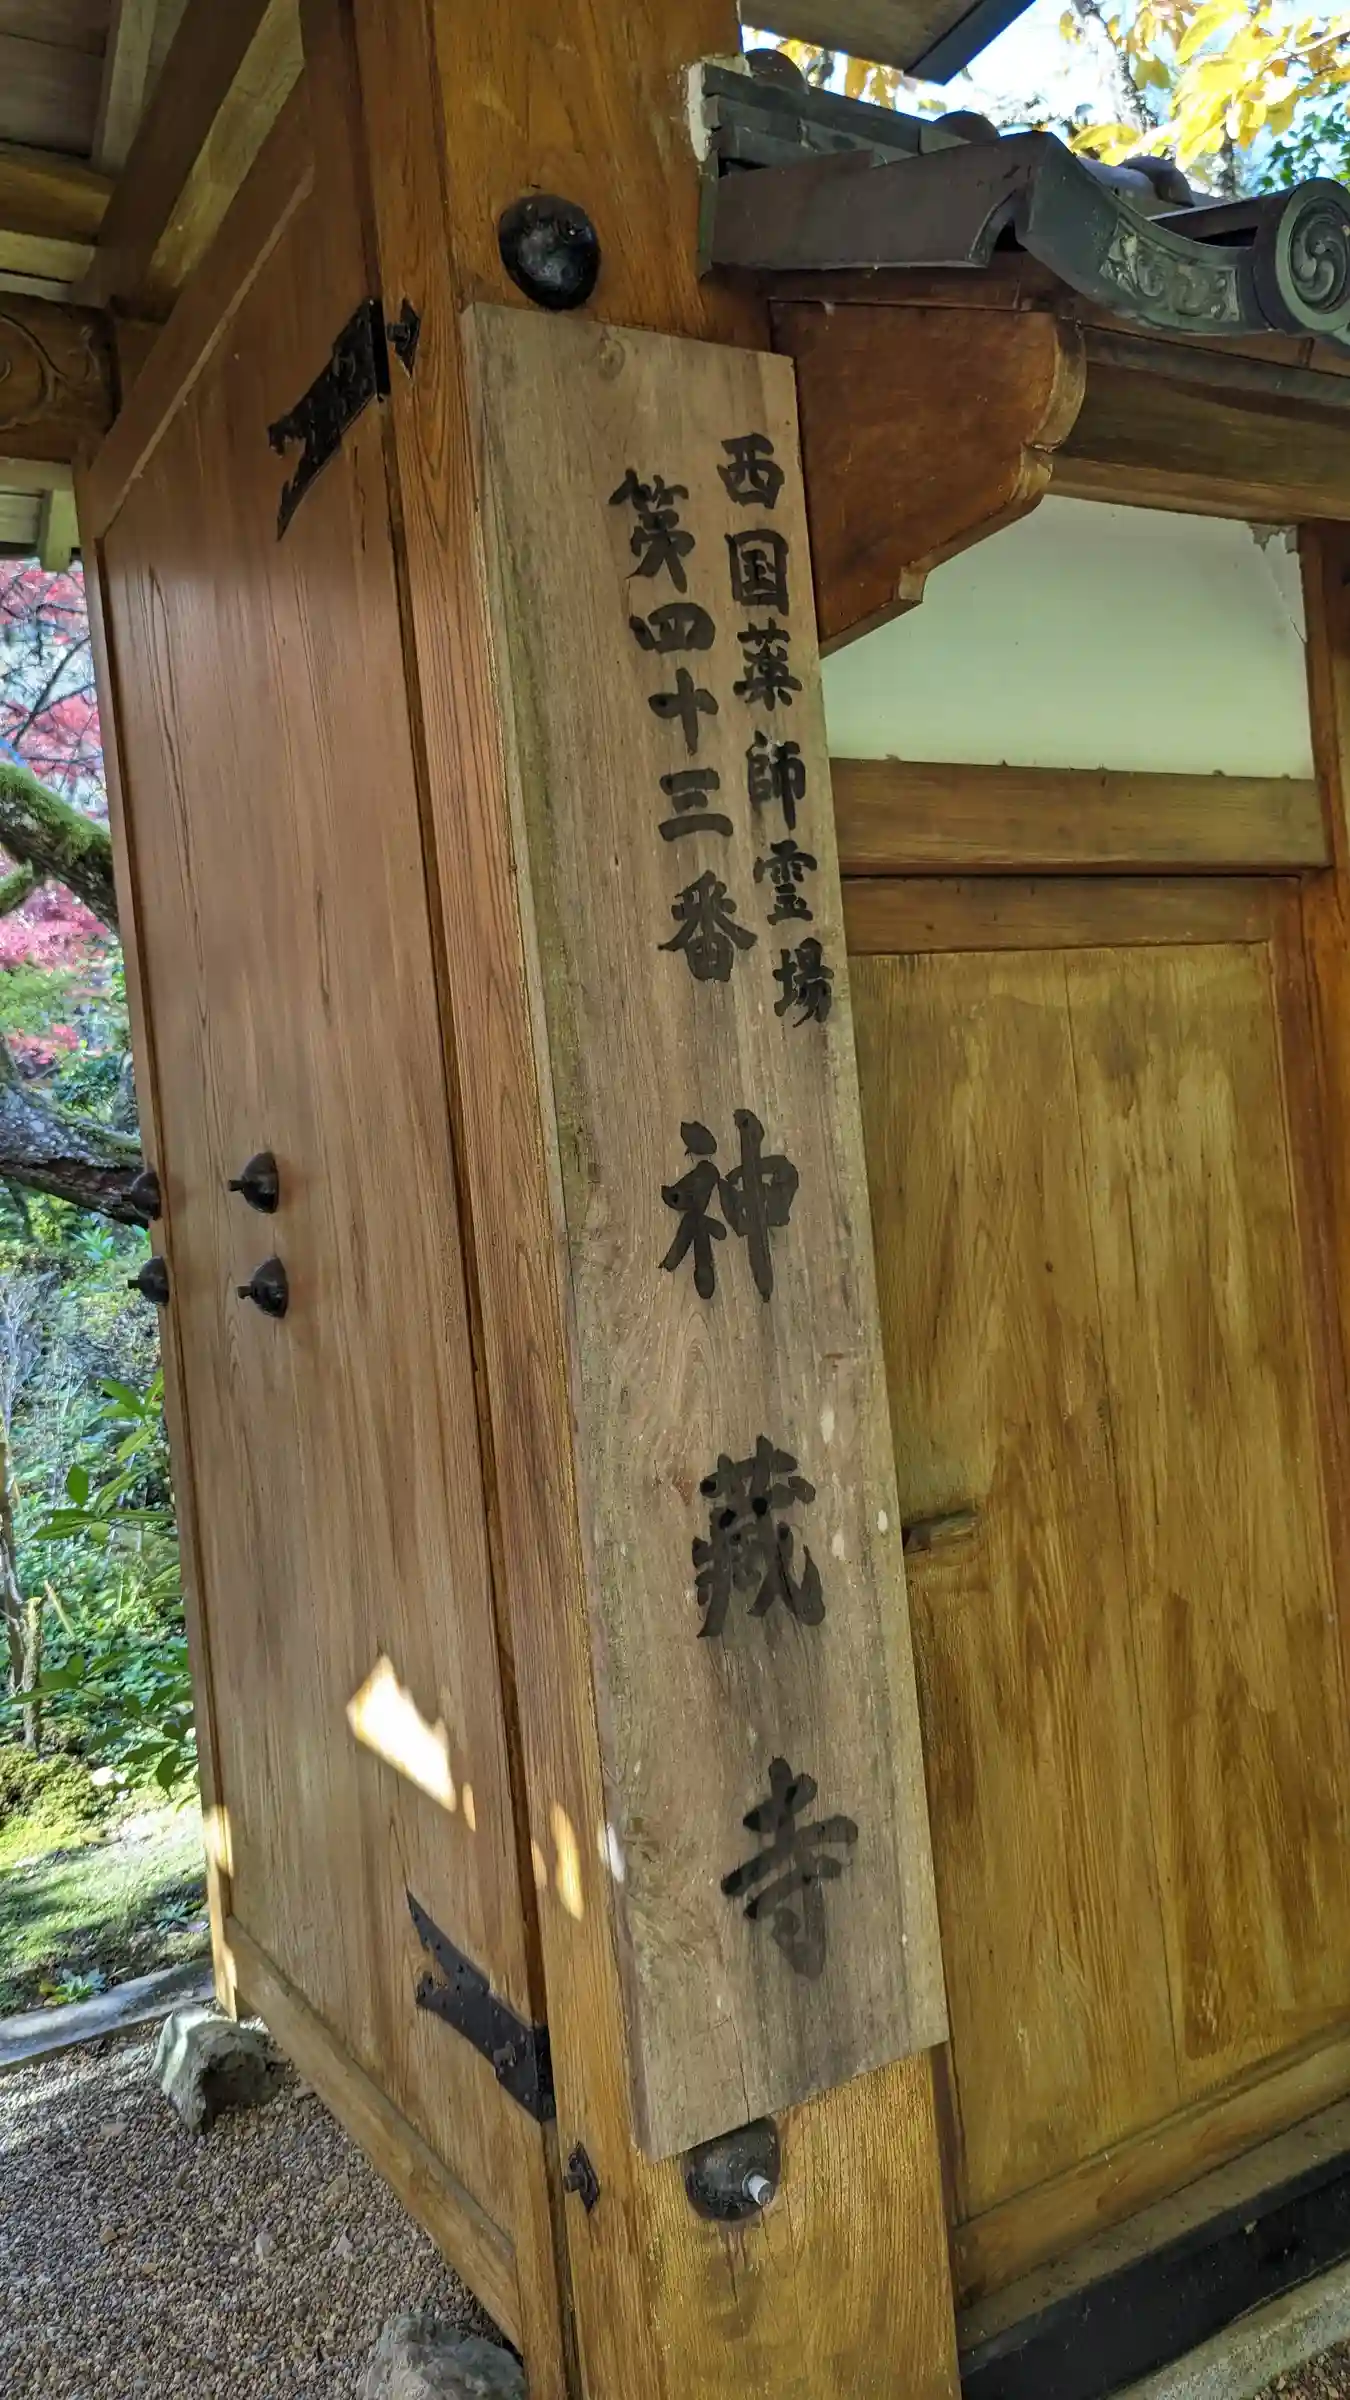 西国薬師霊場
第四十三番
神蔵寺